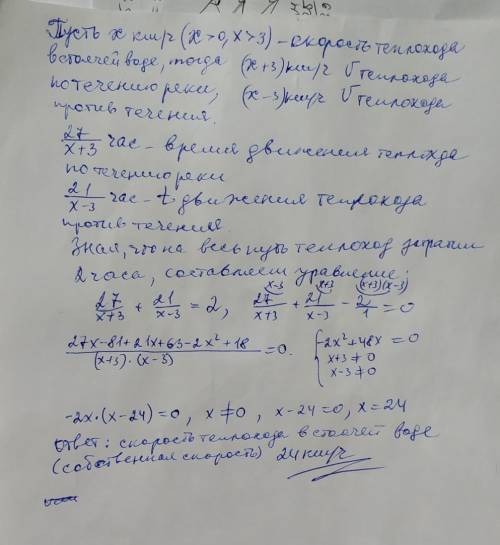 Пусть x км/ч (x>0, x>3) - скорость теплохода
в стоячей воде, тогда (x+3) км/ч V теплохода
по течению реки, (x-3) км/ч V теплохода
против течения.
27/(x+3) час - время движения теплохода
по течению реки
21/(x-3) час - t движения теплохода
против течения.
Зная, что на весь путь теплоход затратил
2 часа, составляем уравнение:
27/(x+3) + 21/(x-3) = 2, 27/(x+3) + 21/(x-3) - 2/1 = 0
(27x-81+21x+63-2x²+18)/((x+3)·(x-3)) = 0. { -2x²+48x = 0
x+3≠0
x-3≠0
-2x·(x-24)=0, x≠0, x-24=0, x=24
Ответ: скорость теплохода в стоячей воде
(собственная скорость) 24 км/ч